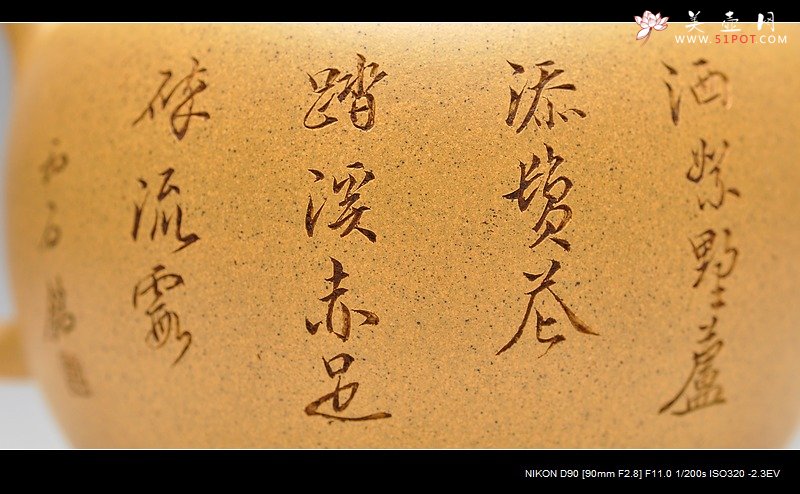 美壶网
WWW.51POT.COM
洒絮野蘆
添鬢花
踏溪赤足
碎流霞
NIKON D90 [90mm F2.8] F11.0 1/200s ISO320 -2.3EV